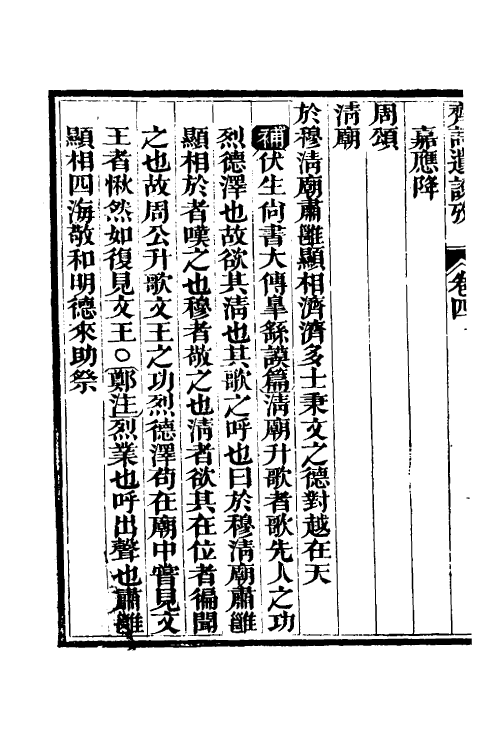 齊詩遺說攷 卷四
嘉應降
周頌
清廟
於穆清廟肅雝顯相濟濟多士秉文之德對越在天
補伏生尙書大傳皐繇謨篇清廟升歌者歌先人之功
烈德澤也故欲其清也其歌之呼也曰於穆清廟肅雝
顯相於者嘆之也穆者敬之也清者欲其在位者徧聞
之也故周公升歌文王之功烈德澤苟在廟中嘗見文
王者愀然如復見文王○鄭注烈業也呼出聲也肅雝
顯相四海敬和明德來助祭